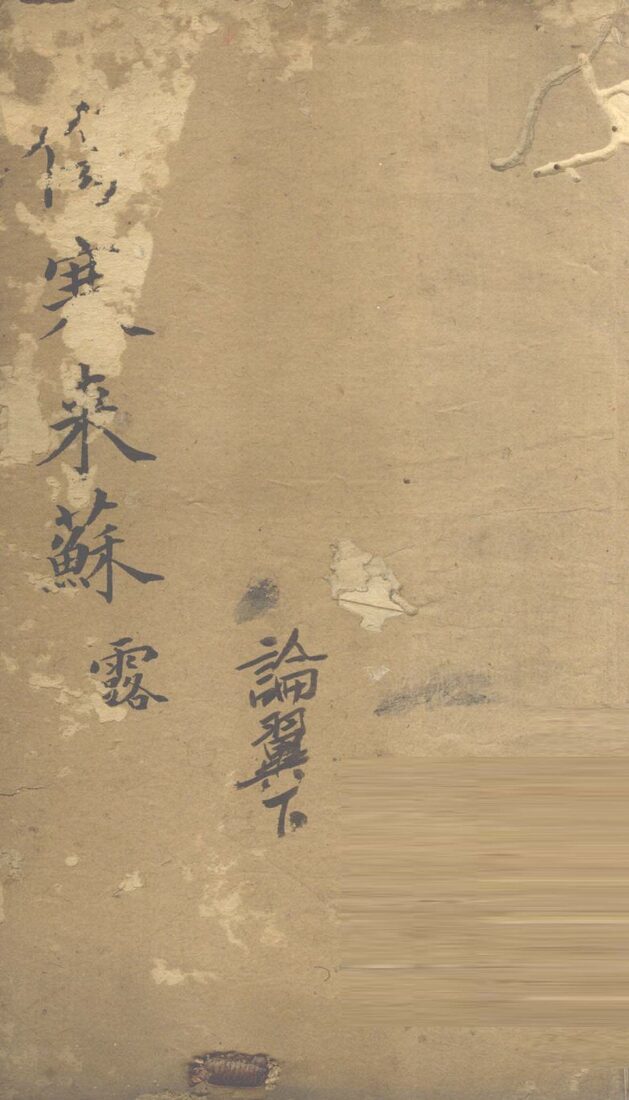 傷寒来蘇 露
論翼下